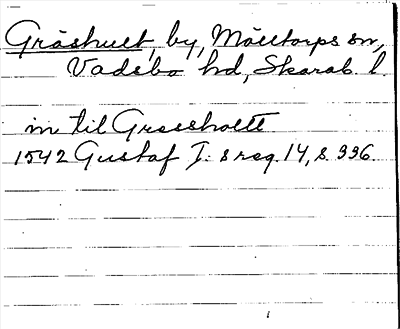 Gråshult, by, Mölltorps sn,
Vadsbo hd, Skarab. l.
in til Gresshollt
1542 Gustaf I:s reg. 14, s. 336.